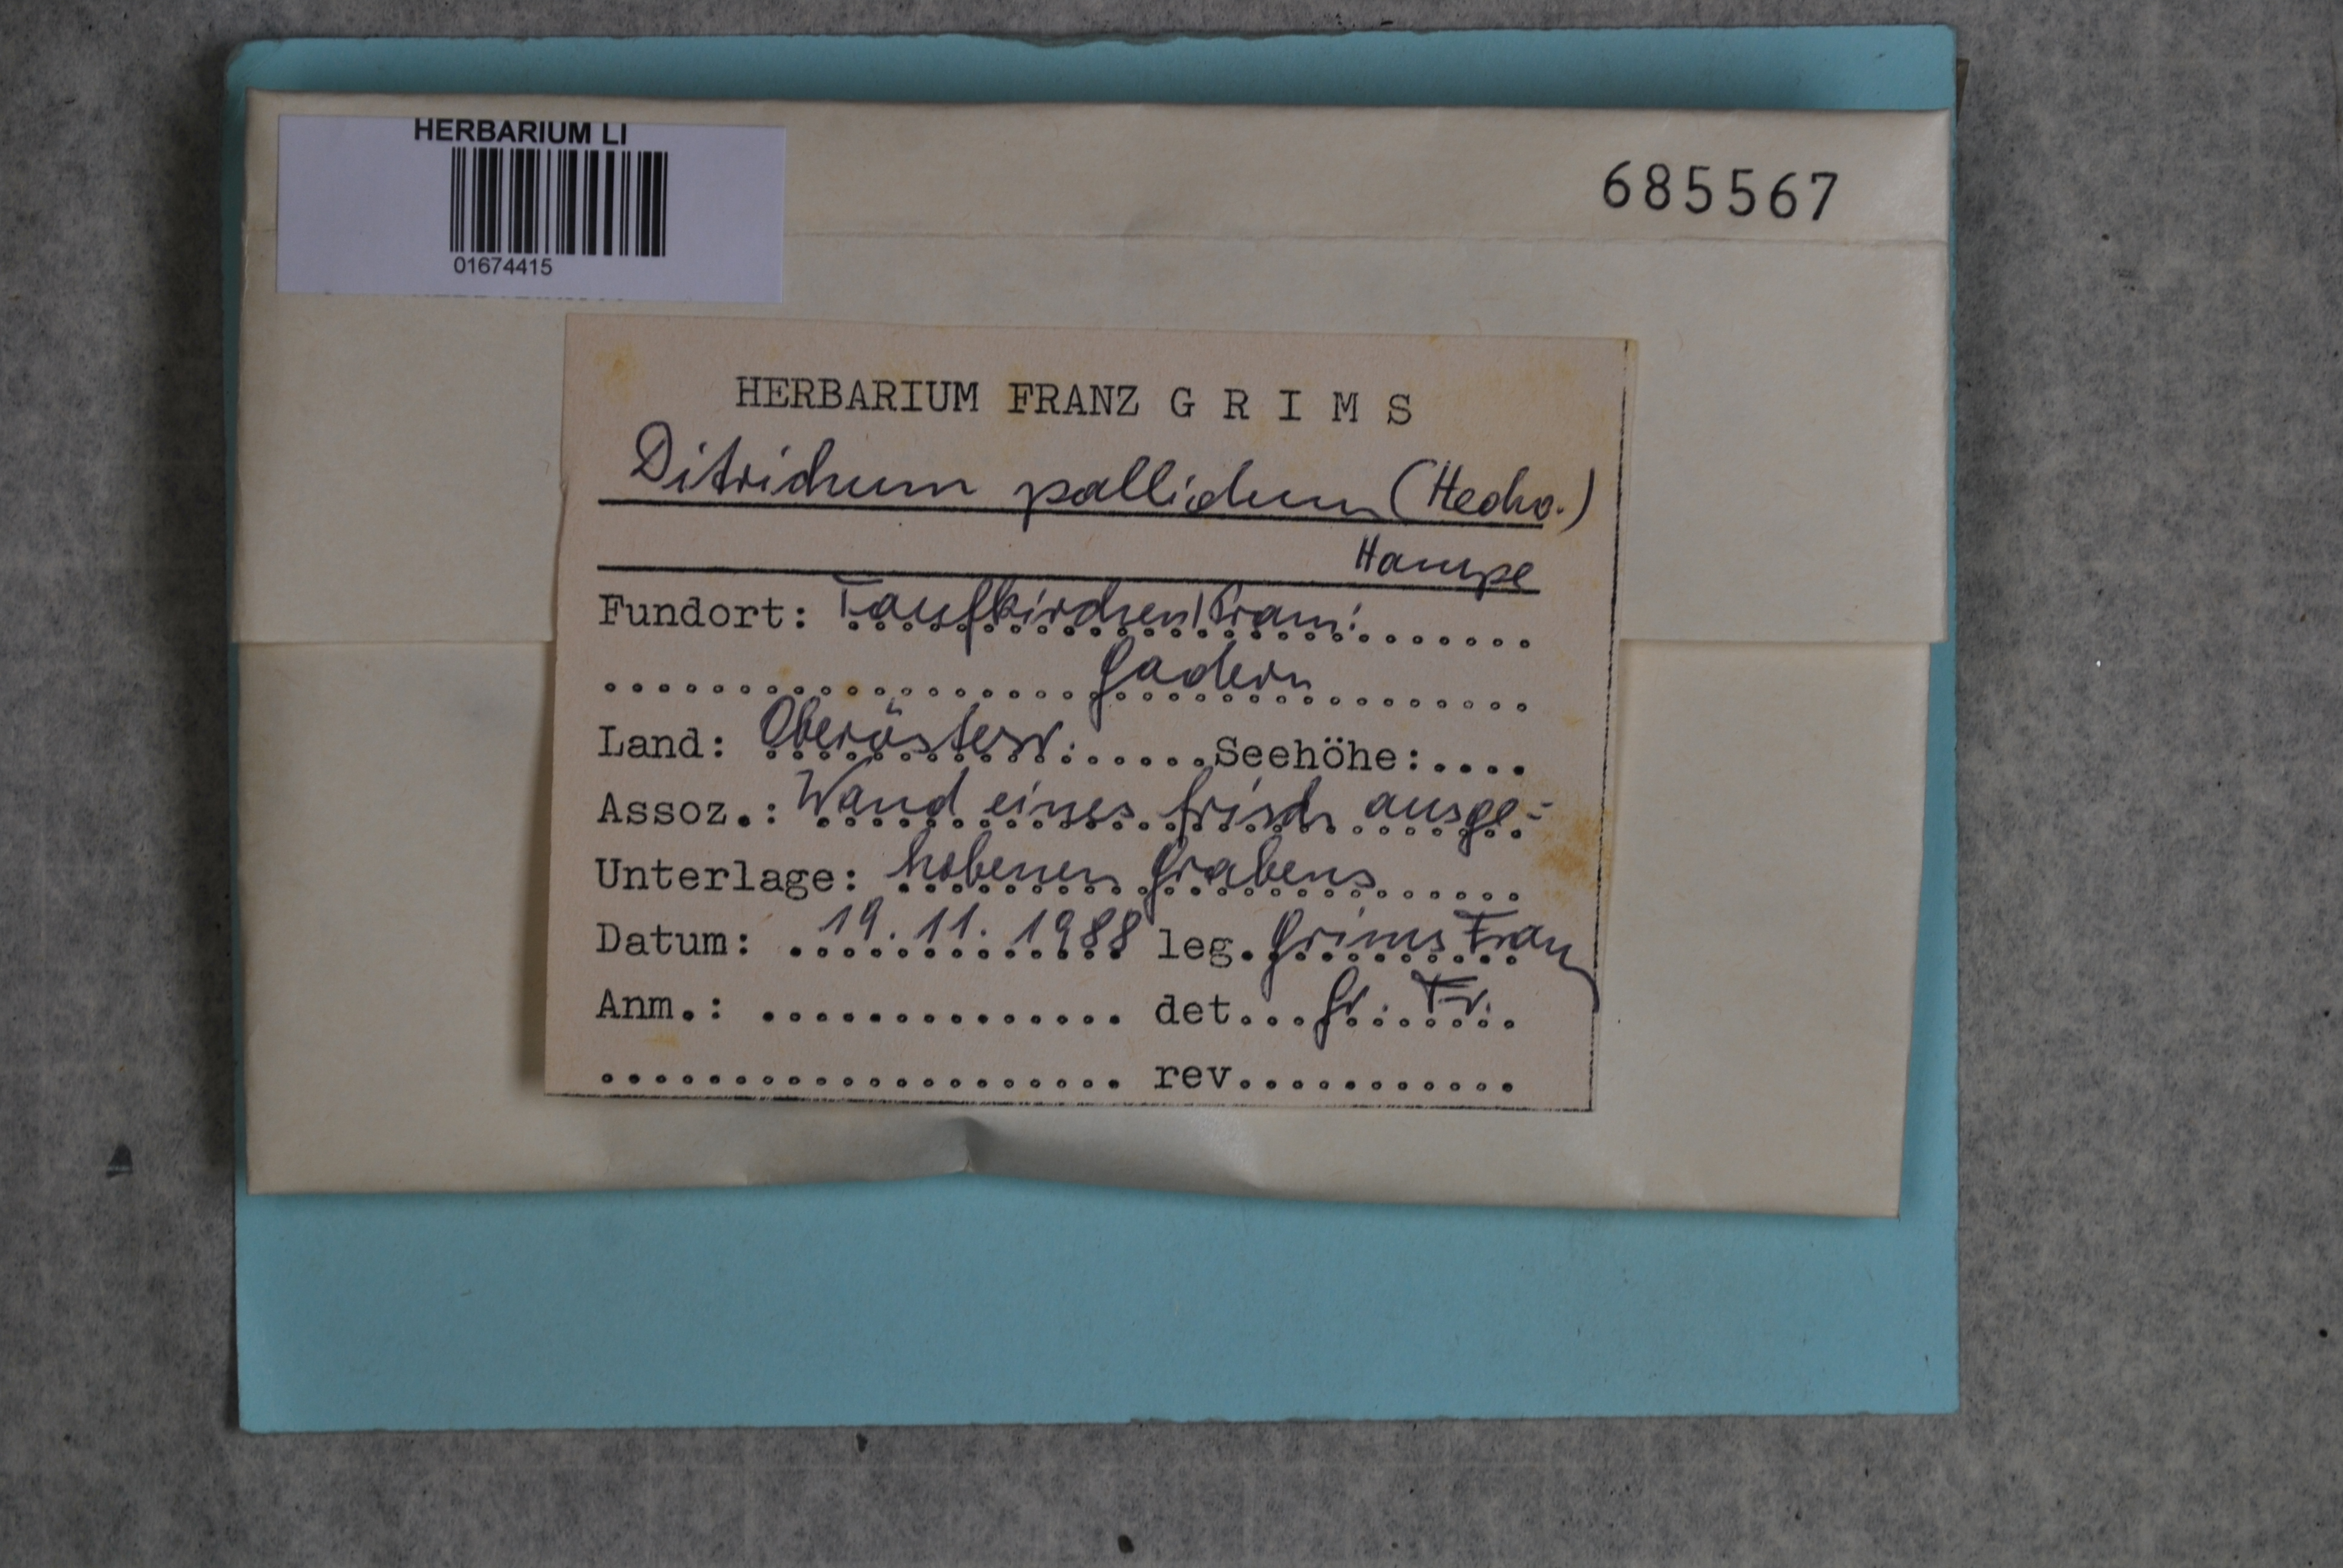 HERBARIUM LI
01674415
685567
HERBARIUM FRANZ G R I M S
Ditrichum pallidum (Hedw.)
Hampe
Fundort: Taufkirchen/Pram:
Gadern
Land: Oberösterr. Seehöhe:....
Assoz.: Wand eines frisch ausge-
Unterlage: hobenen Grabens
Datum: 19. 11. 1988 leg. Grims Franz
Anm.: .............. det... Gr. Fr.
.................... rev...........